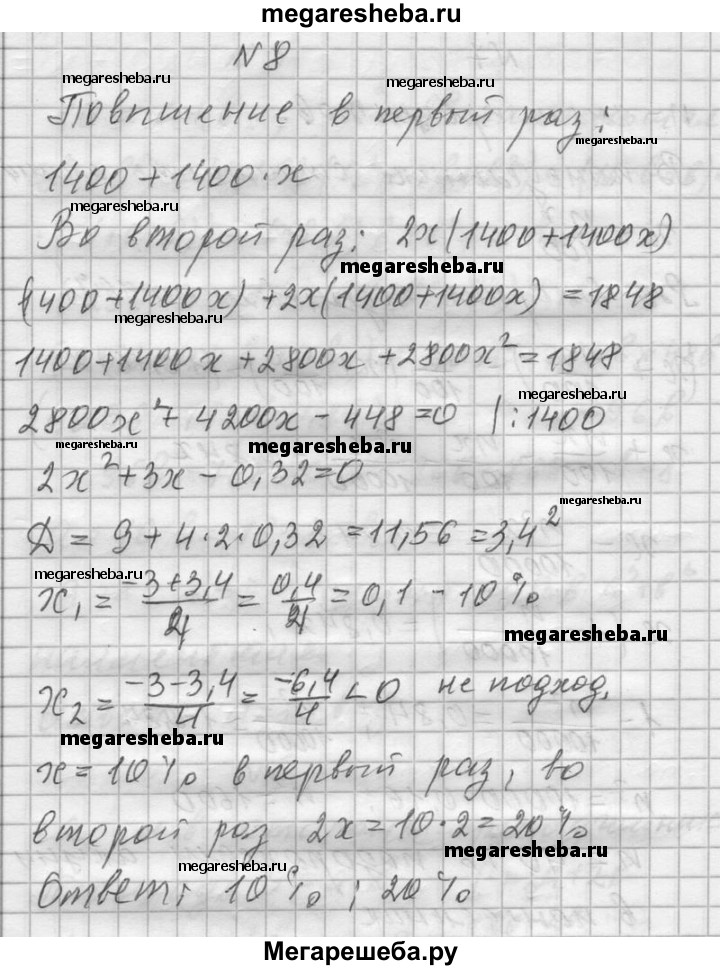 megaresheba.ru
N 8
megaresheba.ru
Повышение в первый раз:
megaresheba.ru
1400 + 1400 · x
megaresheba.ru
Во второй раз: 2x(1400+1400x)
megaresheba.ru
(1400+1400x) + 2x(1400+1400x) = 1848
megaresheba.ru
1400+1400x+2800x+2800x² = 1848
megaresheba.ru
2800x² + 4200x - 448 = 0 |:1400
megaresheba.ru
megaresheba.ru
2x² + 3x - 0,32 = 0
megaresheba.ru
Д = 9 + 4·2·0,32 = 11,56 = 3,4²
megaresheba.ru
x₁ = (-3+3,4)/4 = 0,4/4 = 0,1 - 10%
megaresheba.ru
x₂ = (-3-3,4)/4 = -6,4/4 < 0 не подход.
megaresheba.ru
x = 10% в первый раз, во
второй раз 2x = 10·2 = 20%
megaresheba.ru
megaresheba.ru
Ответ: 10% ; 20%
Мегарешеба.ру